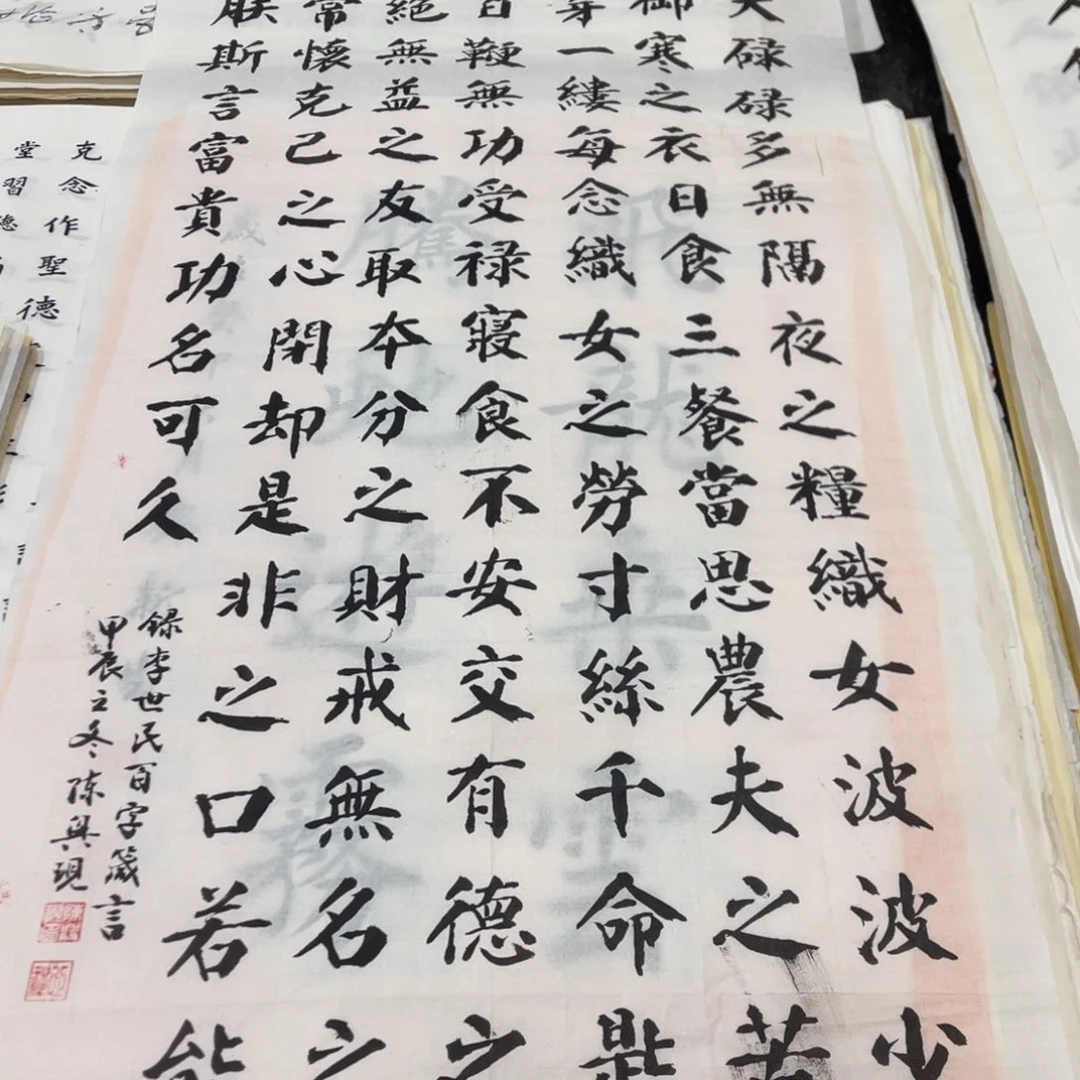 夫碌碌多無隔夜之糧織女波波少
御寒之衣日食三餐當思農夫之苦
穿一縷每念織女之勞寸絲千命匙
百鞭無功受禄寢食不安交有德之
絕無益之友取夲分之財戒無名之
常懷克己之心閉却是非之口若能
朕斯言富貴功名可久
錄李世民百字箴言
甲辰立冬陈興現
克念作聖德
堂習聽